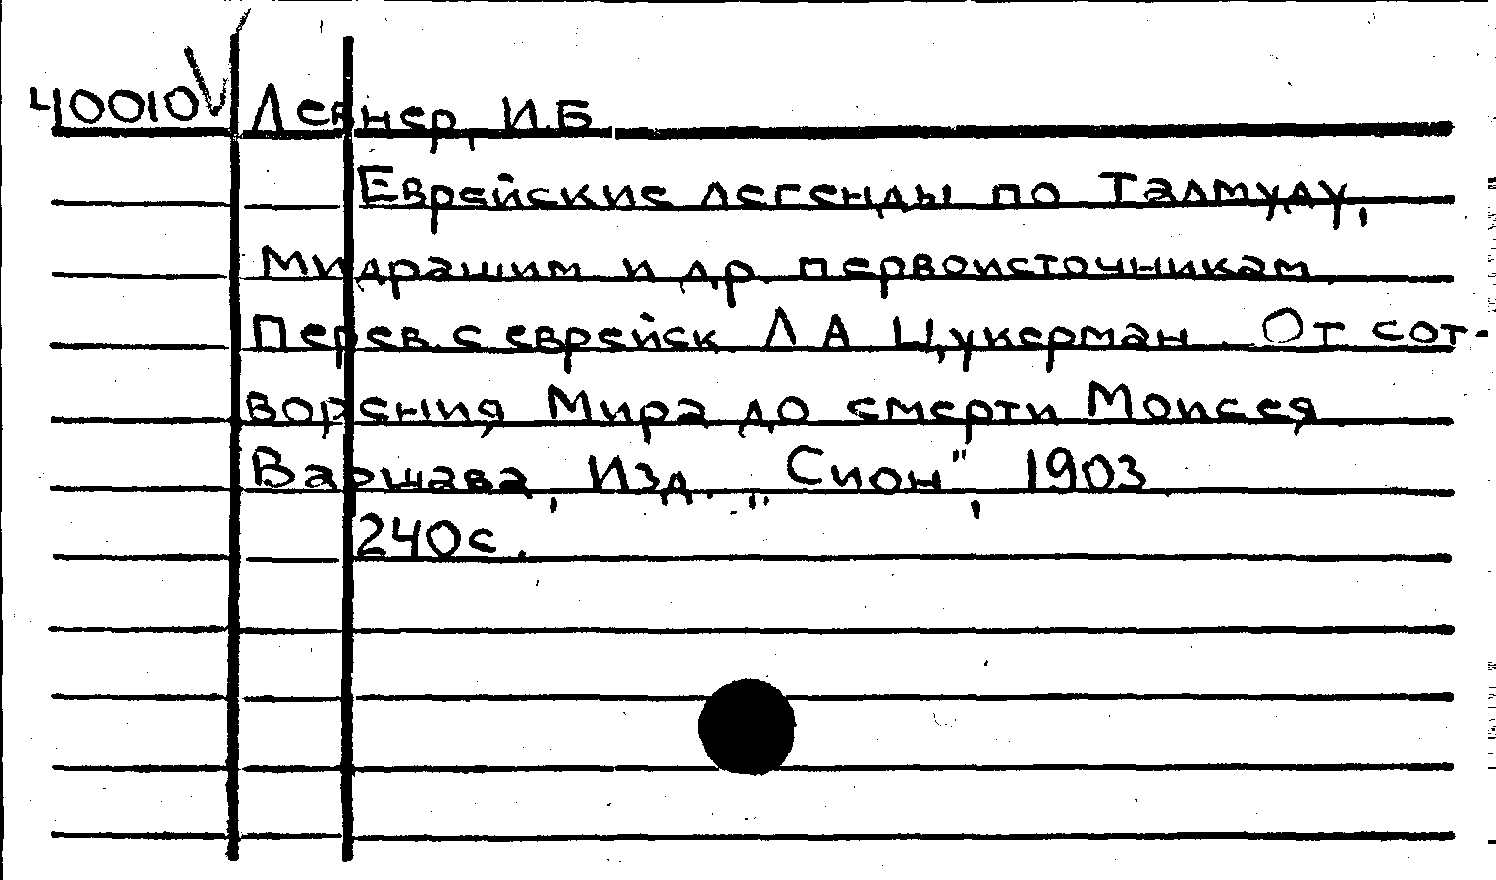 40010V Левнер, И.Б.
Еврейские легенды по Талмуду,
Мидрашим и др. первоисточникам.
Перев. с еврейск Л А Цукерман. От сот-
ворения Мира до смерти Моисея
Варшава, Изд. „Сион", 1903
240с.